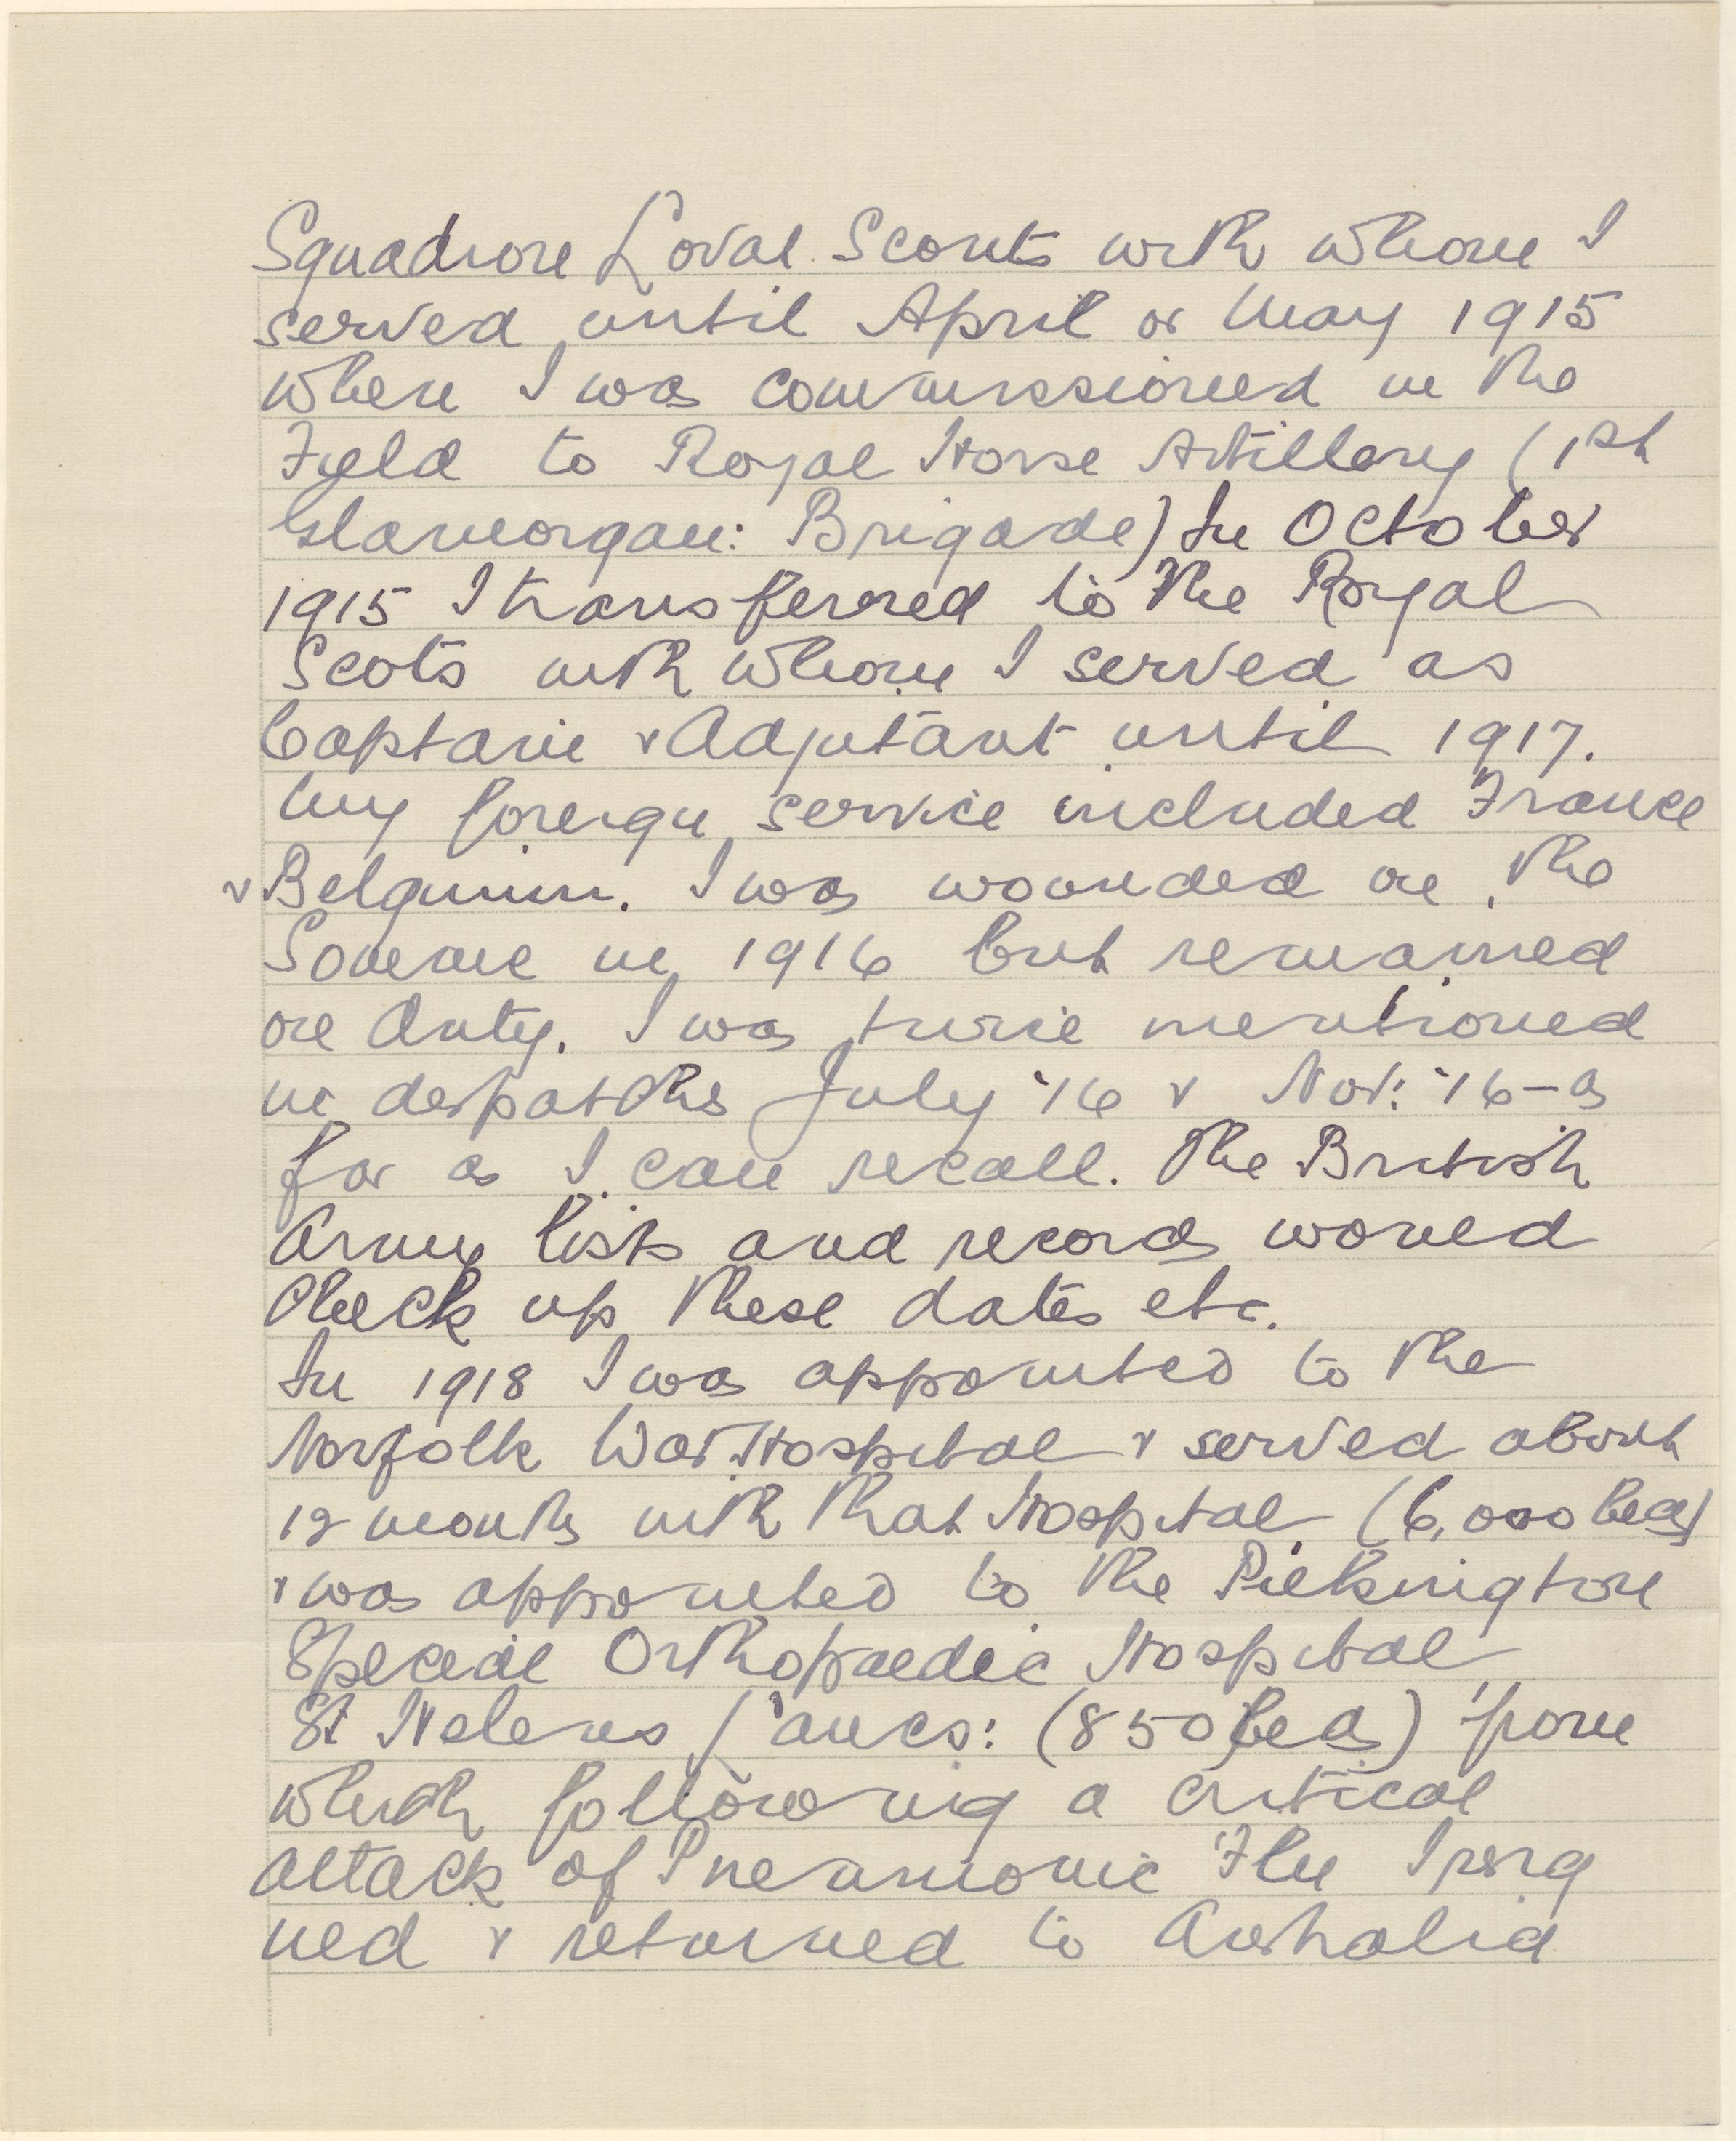 Squadron Lovat Scouts with whom I
served until April or May 1915
when I was commissioned in the
Field to Royal Horse Artillery (1st
Glamorgan: Brigade) In October
1915 I transferred to the Royal
Scots with whom I served as
Captain & Adjutant until 1917.
My foreign service included France
& Belgium. I was wounded on the
Somme in 1916 but remained
on duty. I was twice mentioned
in despatches July '16 & Nov: '16 - as
far as I can recall. The British
Army lists and records would
check up these dates etc.
In 1918 I was appointed to the
Norfolk War Hospital & served about
12 months with that Hospital (6,000 beds)
& was appointed to the Pilkington
Special Orthopaedic Hospital
St Helens Lancs: (850 beds) from
which following a critical
attack of Pneumonic Flu I resig
ned & returned to Australia